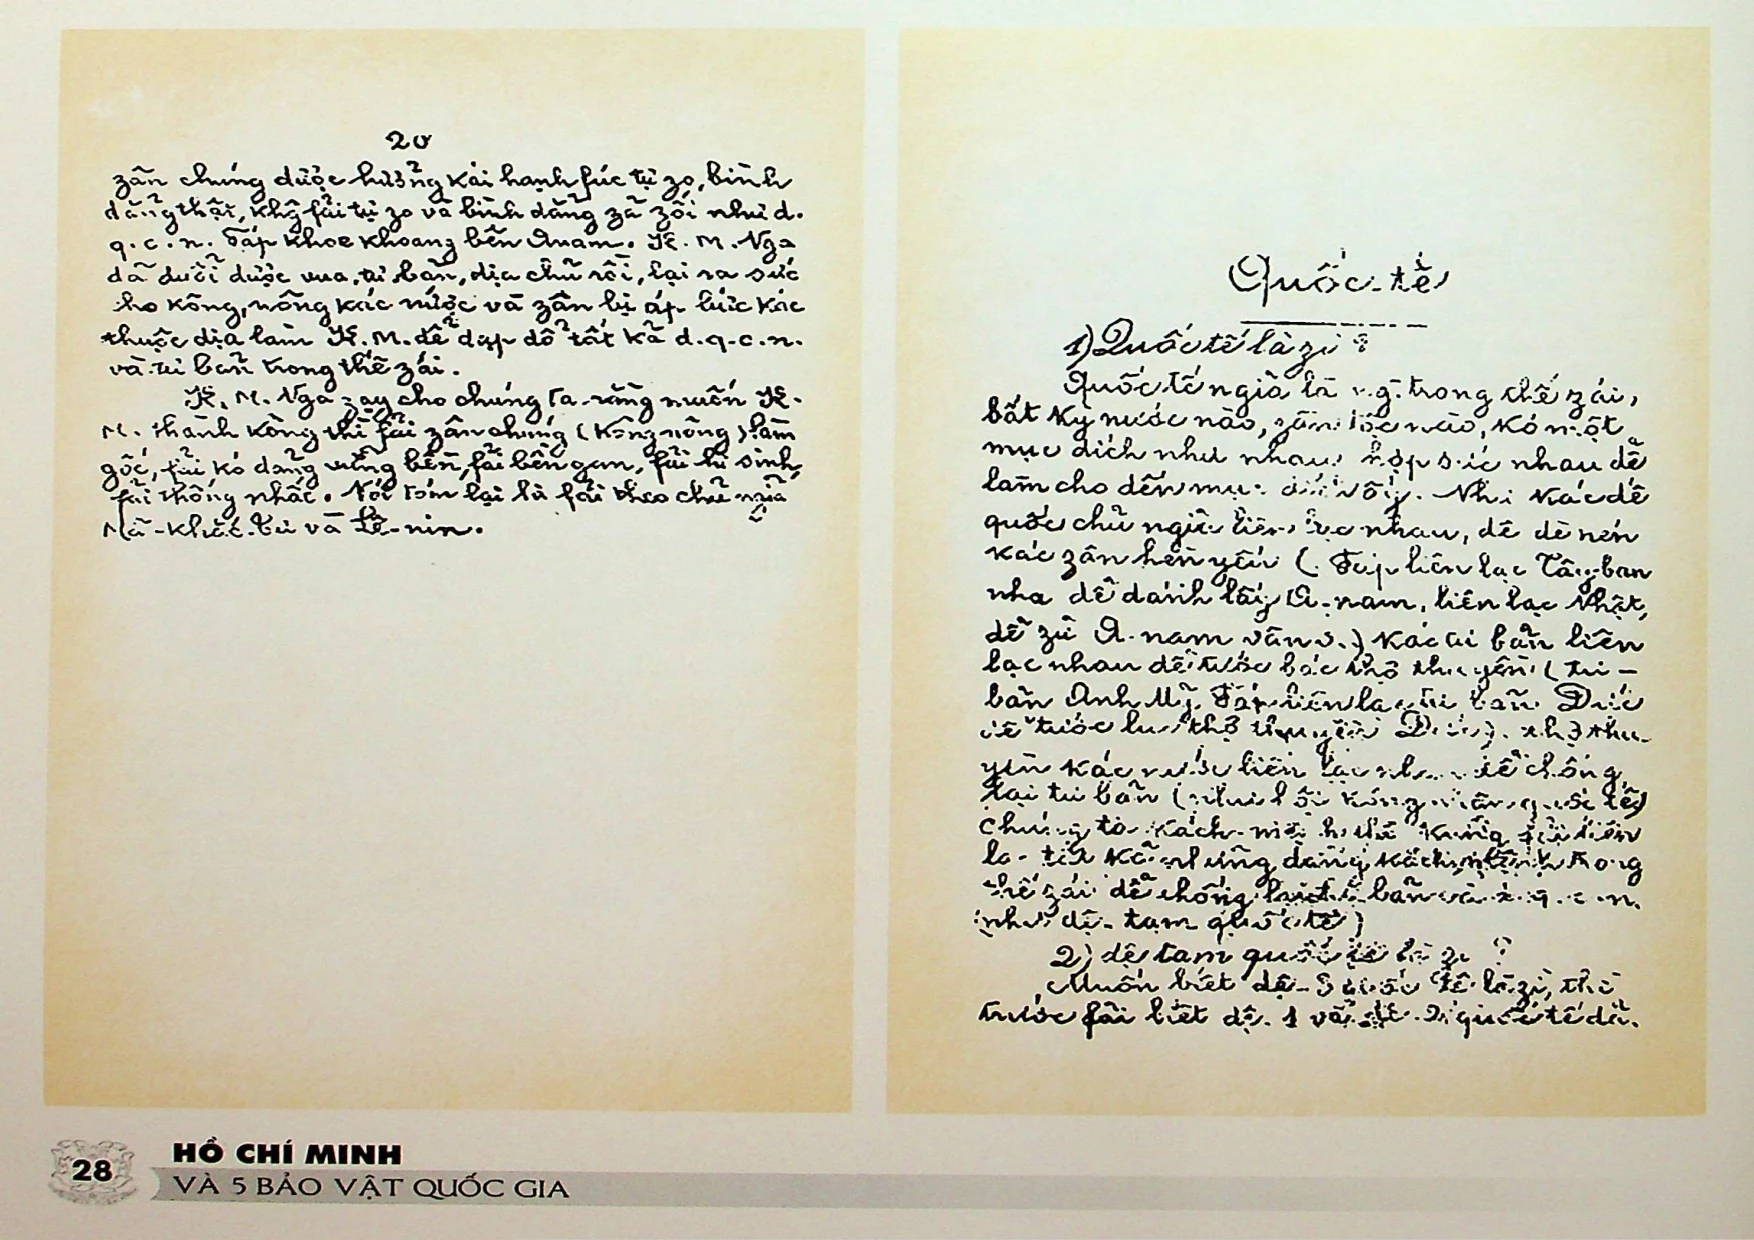 20
zân chúng được hưởng kái hạnh fúc tự zo, bình
đẳng thật, khg fải tự zo và bình đẳng zả zối như d.
q.c.n. Fáp khoe khoang bên Anam. K. M. Nga
đã đuổi được vua, tư bản, địa chủ rồi, lại ra sức
cho kông, nông kác nước và zân bị áp bức kác
thuộc địa làm K. M. để đạp đổ tất kả d.q.c.n.
và tư bản trong thế zái.
K. M. Nga zạy cho chúng ta rằng muốn K.
M. thành kông thì fải zân chúng (kông nông) làm
gốc, fải kó đảng vững bền, fải bền gan, fải hi sinh,
fải thống nhất. Nói tóm lại là fải theo chủ nghĩa
Mã-khắc-tư và Lê-nin.
Quốc-tế
1) Quốc tế là zì ?
Quốc tế nghĩa là trong thế zái,
bất kỳ nước nào, zân tộc nào, kó một
mục đích như nhau, hợp sức nhau để
làm cho đến mục đích ấy. Như kác đế
quốc chủ nghĩa liên lạc nhau, để đè nén
kác zân hèn yếu (Fáp liên lạc Tây ban
nha để đánh lấy A-nam, liên lạc Nhật,
để zữ A-nam vân v.) kác tư bản liên
lạc nhau để tước bác thợ thuyền (tư-
bản Anh Mỹ, Fáp liên lạc tư bản Đức
để tước lục thợ thuyền Đức). thợ thu-
yền kác nước liên lạc nhau để chống
lại tư bản (như hội kông nhân quốc tế)
chúng ta kách-mệnh thì kũng fải liên
lạc tất kả những đảng kách mệnh trong
thế zái để chống lại tư bản và d.q.c.n.
như đệ-tam quốc tế)
2) đệ tam quốc tế là zì ?
Muốn biết đệ-3 quốc tế là zì, thì
trước fải biết đệ.1 và đệ.2 quốc tế đã.
28
HỒ CHÍ MINH
VÀ 5 BẢO VẬT QUỐC GIA